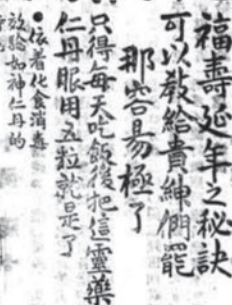 福壽延年之秘訣
可以教給貴紳們罷
那容易極了
只得每天吃飯後把這靈藥
仁丹服用五粒就是了
●依着化食消毒
效驗如神仁丹的